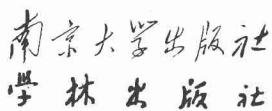 南京大学出版社
學林出版社